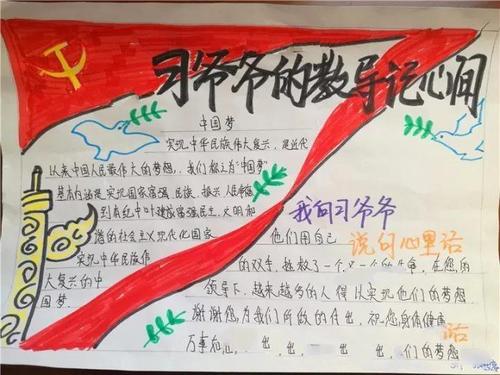 习爷爷的教导记心间
中国梦
实现中华民族伟大复兴，是近代
以来中国人民最伟大的梦想，我们称之为"中国梦"
基本内涵是实现国家富强、民族振兴、人民幸福
我向习爷爷
说句心里话
谐的社会主义现代化国家
实现中华民族伟
大复兴的中
国梦.
他们用自己
的双手，拯救了一个又一个的生命，在您的
领导下，越来越多的人得以实现他们的梦想
谢谢您为我们所做的付出，祝您身体健康
万事
出
出
们的梦想